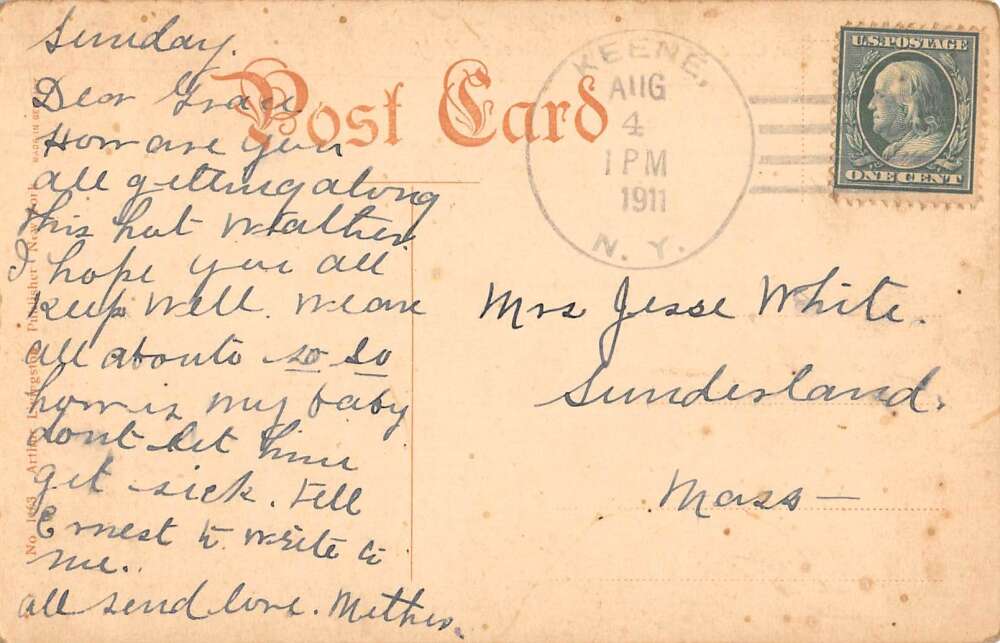 Sunday.
Dear Grace.
How are you
all getting along
this hot weather
I hope you all
keep well. we are
all about so so
how is my baby
dont let him
get sick. tell
Ernest to write to
me.
all send love. Mother.
Post Card
KEENE,
AUG
4
1 PM
1911
N. Y.
U.S. POSTAGE
ONE CENT
Mrs Jesse White.
Sunderland.
Mass —
No. 1463 Arthur Livingston, Publisher, New York
MADE IN